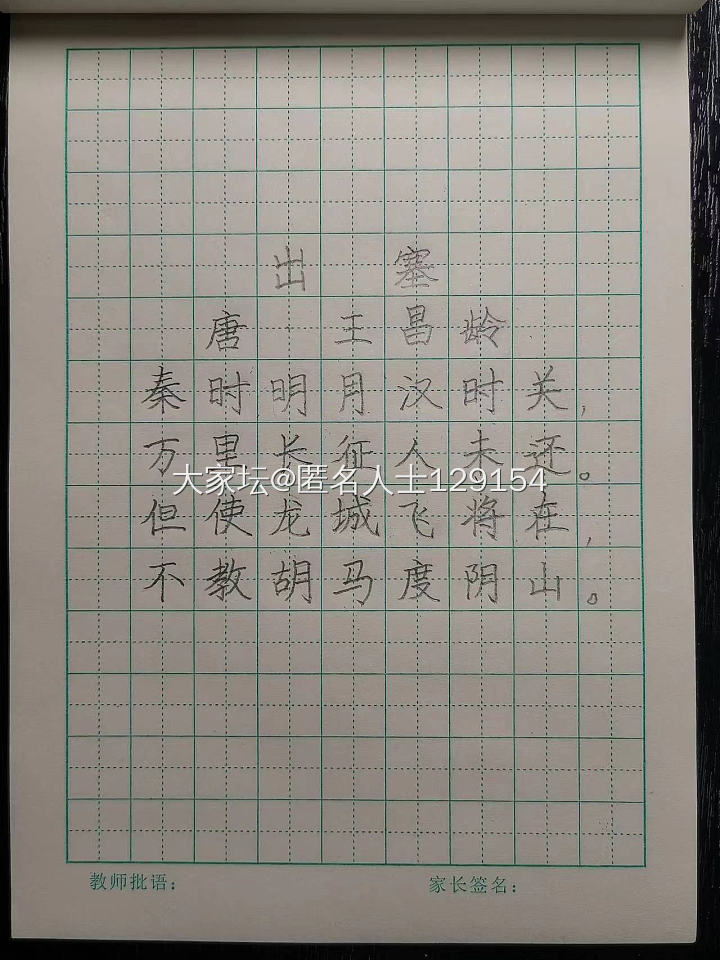 出塞
唐 王昌龄
秦时明月汉时关，
万里长征人未还。
大家坛@匿名人士129154
但使龙城飞将在，
不教胡马度阴山。
教师批语：
家长签名：